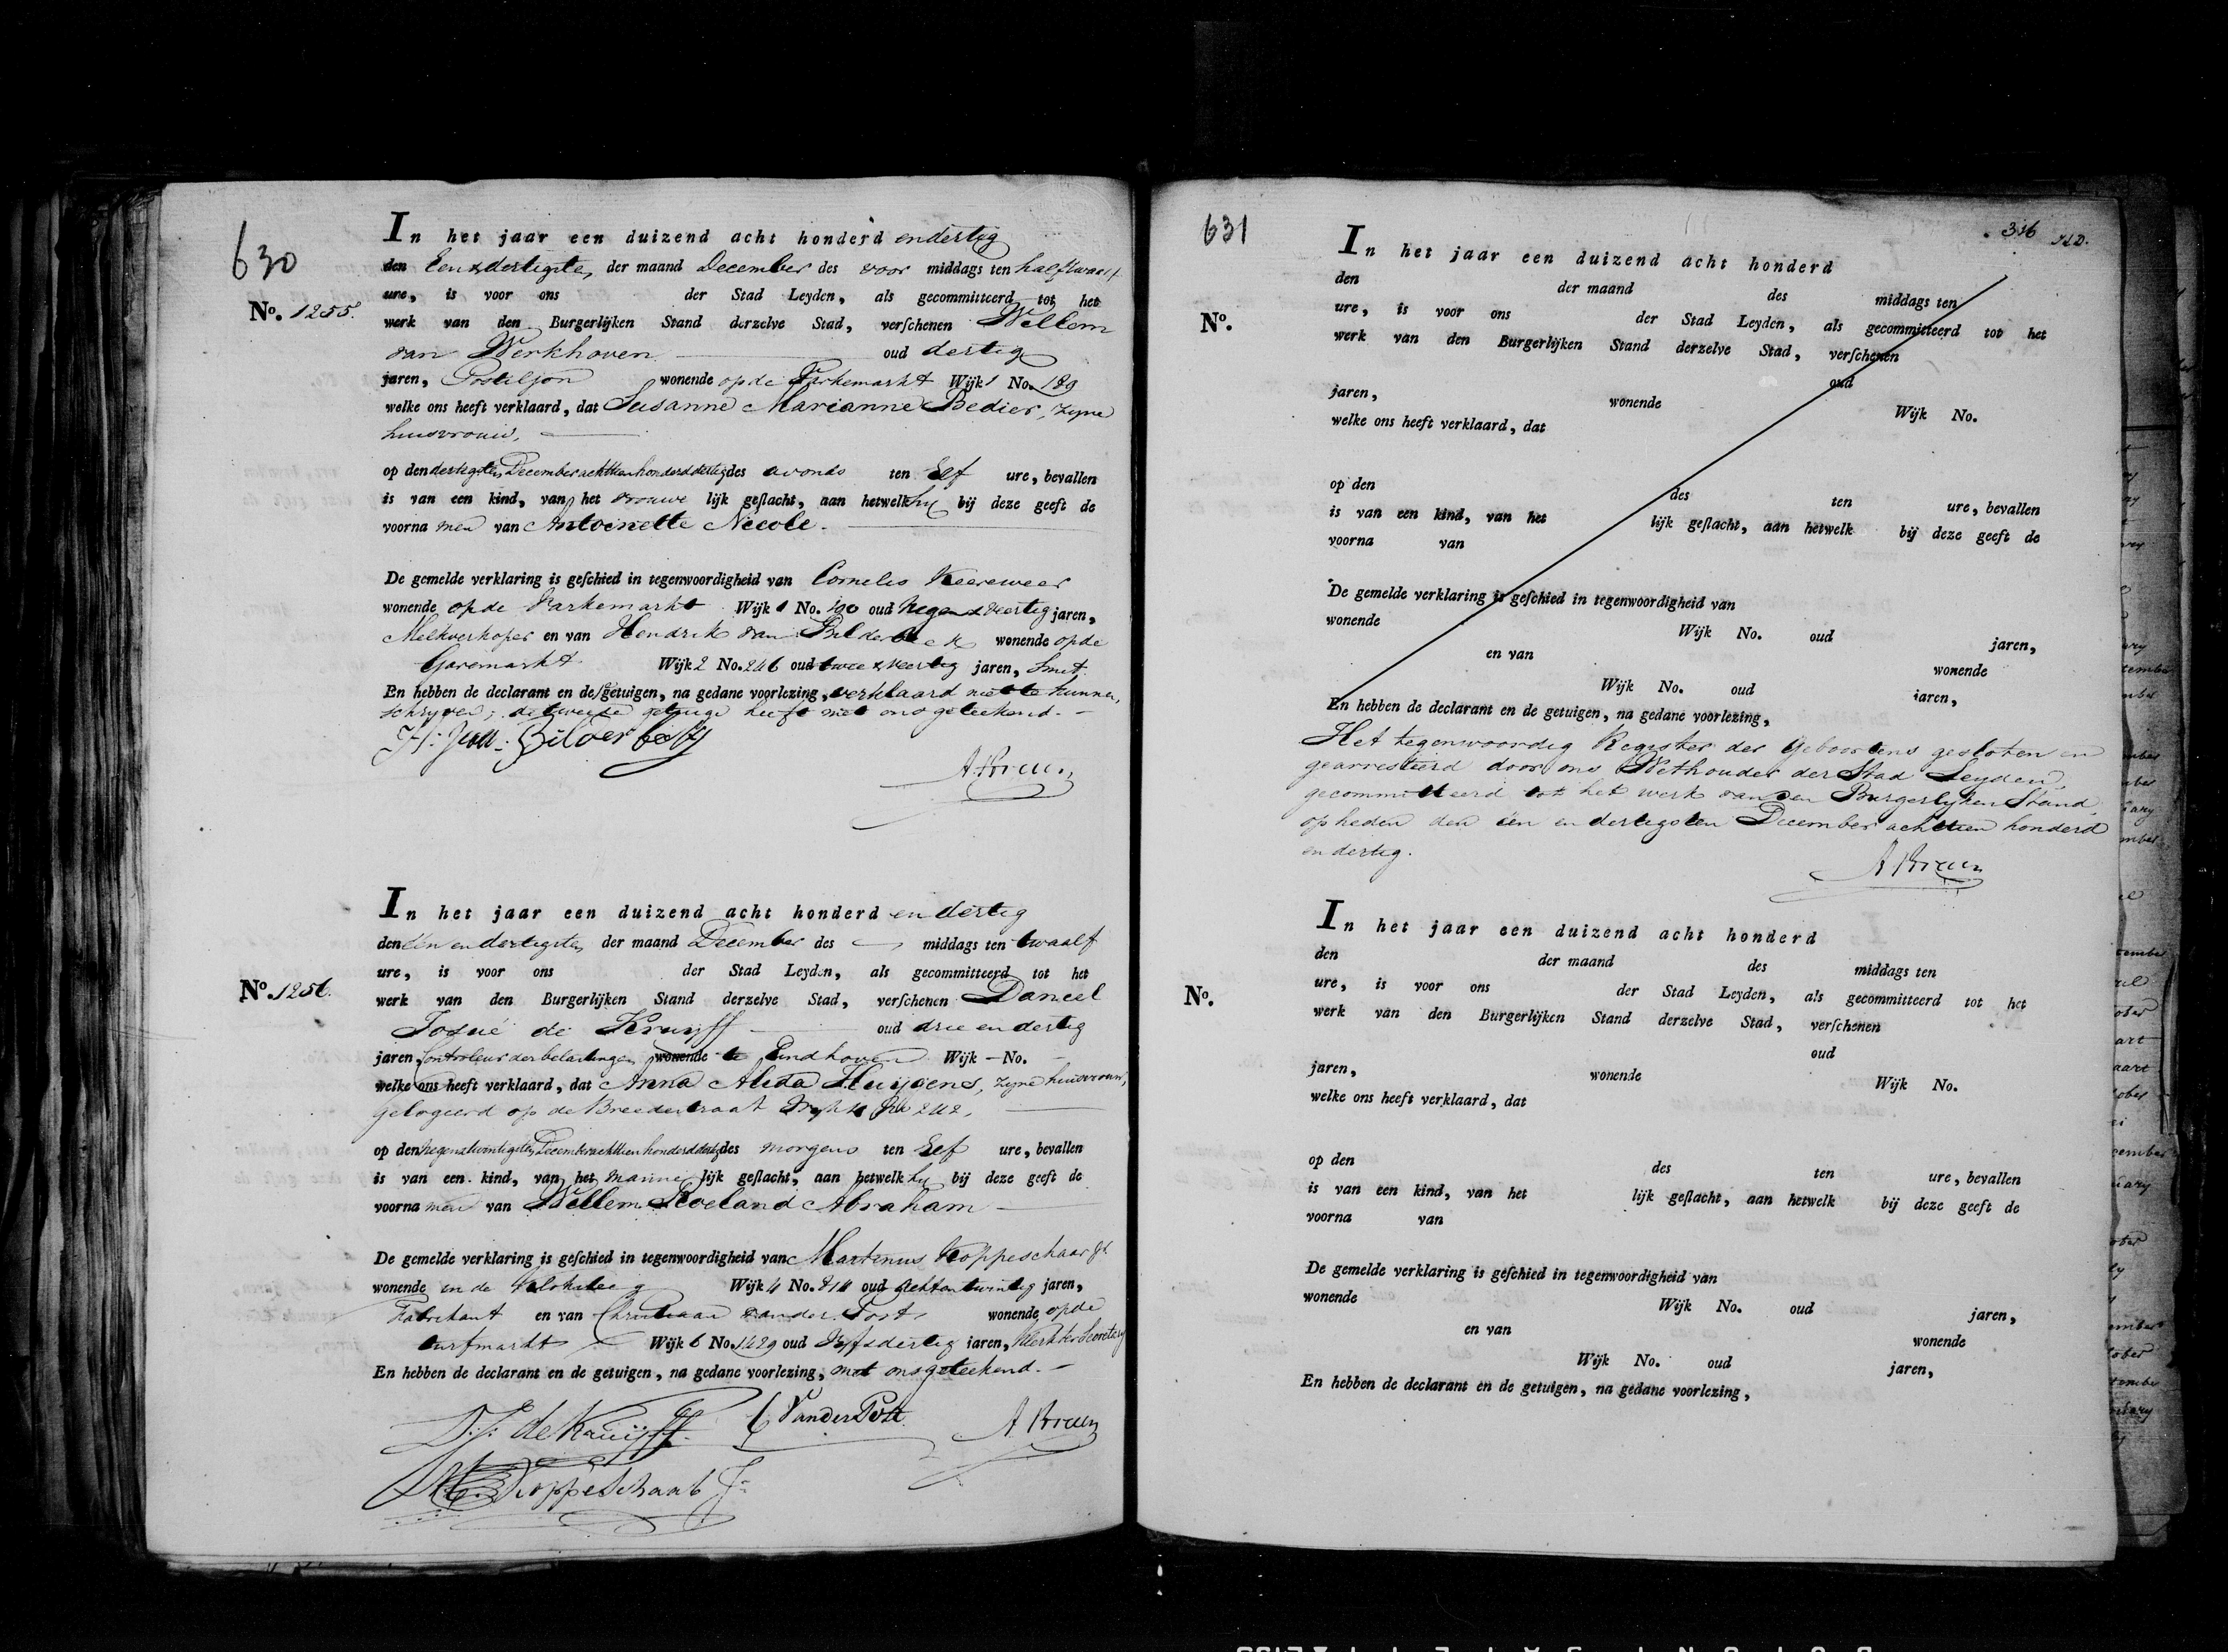 630
In het jaar een duizend acht honderd en dertig
den Een & dertigsten der maand December des voor middags ten half twaalf
ure, is voor ons der Stad Leyden, als gecommitteerd tot het
No. 1255. werk van den Burgerlijken Stand derzelve Stad, verschenen Willem
van Werkhoven oud dertig
jaren, Postiljon wonende op de Varkemarkt Wijk 1 No. 189
welke ons heeft verklaard, dat Susanne Marianne Bedier, zyne
huisvrouw,
op den dertigsten December achttien honderd dertig des avonds ten Elf ure, bevallen
is van een kind, van het vrouwe lijk geslacht, aan hetwelk hy bij deze geeft de
voorna men van Antoinette Nicole.
De gemelde verklaring is geschied in tegenwoordigheid van Cornelis Keereweer
wonende op de Varkemarkt Wijk 1 No. 190 oud Negen & veertig jaren,
Melkverkoper en van Hendrik van Bilderbeek wonende op de
Garemarkt Wijk 2 No. 246 oud twee & veertig jaren, Smit.
En hebben de declarant en de getuigen, na gedane voorlezing, verklaard niet te kunnen
schryven; de tweede getuige heeft met ons geteekend. -
H: van: Bilderbeek
In het jaar een duizend acht honderd en dertig
den één en dertigsten der maand December des middags ten twaalf
ure, is voor ons der Stad Leyden, als gecommitteerd tot het
No. 1256. werk van den Burgerlijken Stand derzelve Stad, verschenen Daniel
Josué de Kruyff oud drie en dertig
jaren, Controleur der belastingen wonende te Eindhoven Wijk - No. -
welke ons heeft verklaard, dat Anna Alida Huijgens, zyne huisvrouw,
gelogeerd op de Breedestraat Wyk 4 No 242,
op den negen & twintigsten December achttien honderd dertig des morgens ten Elf ure, bevallen
is van een kind, van het manne lijk geslacht, aan hetwelk hy bij deze geeft de
voorna men van Willem Roeland Abraham
De gemelde verklaring is geschied in tegenwoordigheid van Martinus Koppeschaar Jr
wonende in de Wijk 4 No. 814 oud Acht en twintig jaren,
Fabrikant en van Christiaan van der Post wonende op de
turfmarkt Wijk 6 No. 1429 oud Vyf & dertig jaren, Klerk ter Secretary
En hebben de declarant en de getuigen, na gedane voorlezing, met ons geteekend. -
D: J: de Kruijff C Van der Post
M: Koppeschaar Jr
631
316
In het jaar een duizend acht honderd
den der maand des middags ten
ure, is voor ons der Stad Leyden, als gecommitteerd tot het
No. werk van den Burgerlijken Stand derzelve Stad, verschenen
oud
jaren, wonende Wijk No.
welke ons heeft verklaard, dat
op den des ten ure, bevallen
is van een kind, van het lijk geslacht, aan hetwelk bij deze geeft de
voorna van
De gemelde verklaring is geschied in tegenwoordigheid van
wonende Wijk No. oud jaren,
en van wonende
Wijk No. oud jaren,
En hebben de declarant en de getuigen, na gedane voorlezing,
Het tegenwoordig Register der Geboortens gesloten en
gearresteerd door ons Wethouder der Stad Leyden,
gecommitteerd tot het werk van den Burgerlyken Stand,
op heden den één en dertigsten December achttien honderd
en dertig.
In het jaar een duizend acht honderd
den der maand des middags ten
ure, is voor ons der Stad Leyden, als gecommitteerd tot het
No. werk van den Burgerlijken Stand derzelve Stad, verschenen
oud
jaren, wonende Wijk No.
welke ons heeft verklaard, dat
op den des ten ure, bevallen
is van een kind, van het lijk geslacht, aan hetwelk bij deze geeft de
voorna van
De gemelde verklaring is geschied in tegenwoordigheid van
wonende Wijk No. oud jaren,
en van wonende
Wijk No. oud jaren,
En hebben de declarant en de getuigen, na gedane voorlezing,